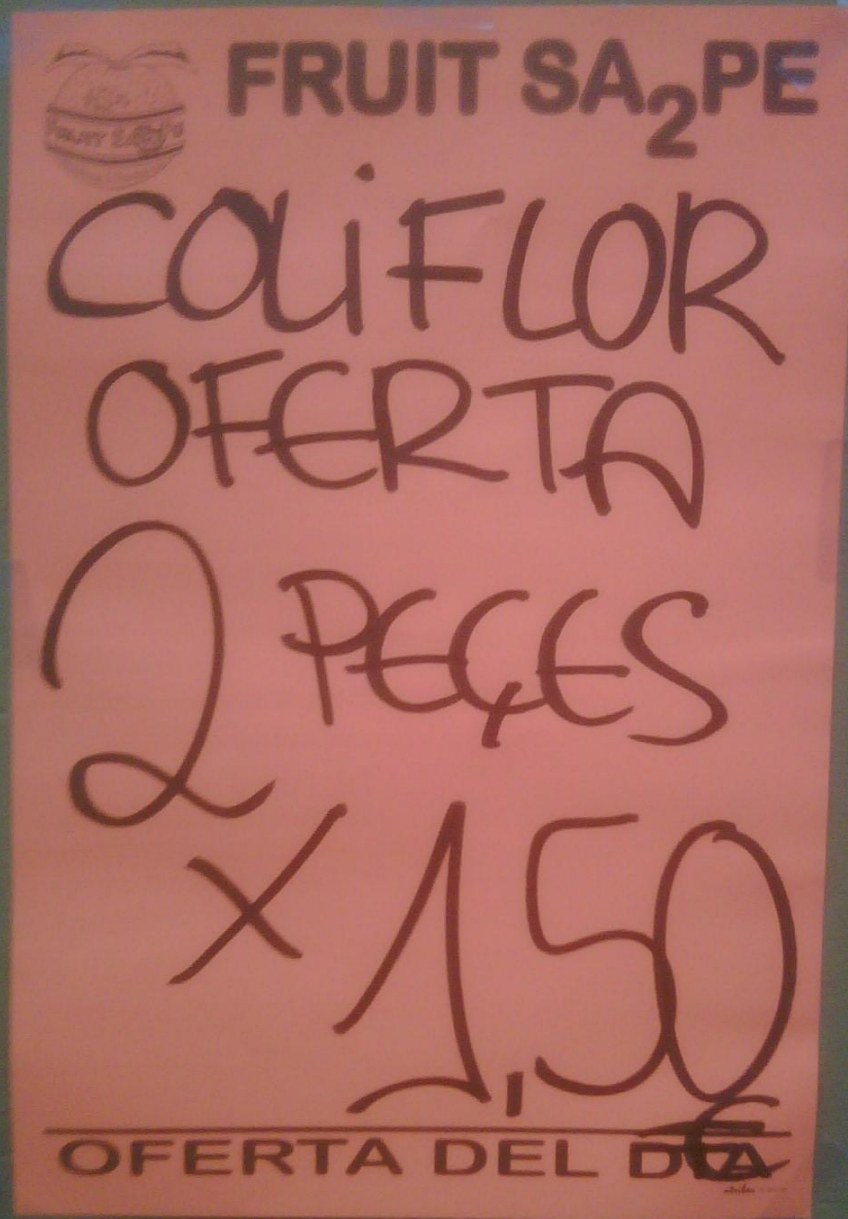 FRUIT SA2PE
FRUIT SA2PE
COLiFLOR
OFERTA
2 PEÇES
X 1,50
€
OFERTA DEL DIA